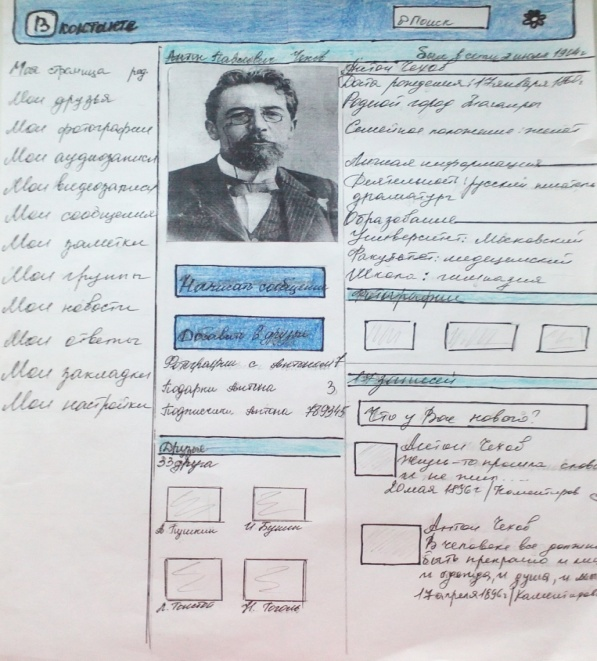 В контакте
Поиск
Моя страница ред
Мои друзья
Мои фотографии
Мои аудиозаписи
Мои видеозаписи
Мои сообщения
Мои заметки
Мои группы
Мои новости
Мои ответы
Мои закладки
Мои настройки
Антон Павлович Чехов
Написать сообщение
Добавить в друзья
Фотографии с Антоном 17
Подарки Антона 3
Подписчики Антона 789345
Друзья
33 друга
А. Пушкин
И. Бунин
Л. Толстой
Н. Гоголь
Был в сети 2 июля 1904г
Антон Чехов
Дата рождения: 17 января 1860г
Родной город Таганрог
Семейное положение: женат
Личная информация
Деятельность: русский писатель
драматург
Образование
Университет: Московский
Факультет: медецинский
Школа: гимназия
Фотографии
записей
Что у Вас нового?
Антон Чехов
Жизнь-то прошла, слов
и не жил....
20 мая 1896г/Коментиров
Антон Чехов
В человеке все должно
быть прекрасно и ли
и одежда, и душа, и мы
17 апреля 1896г/Коментиров